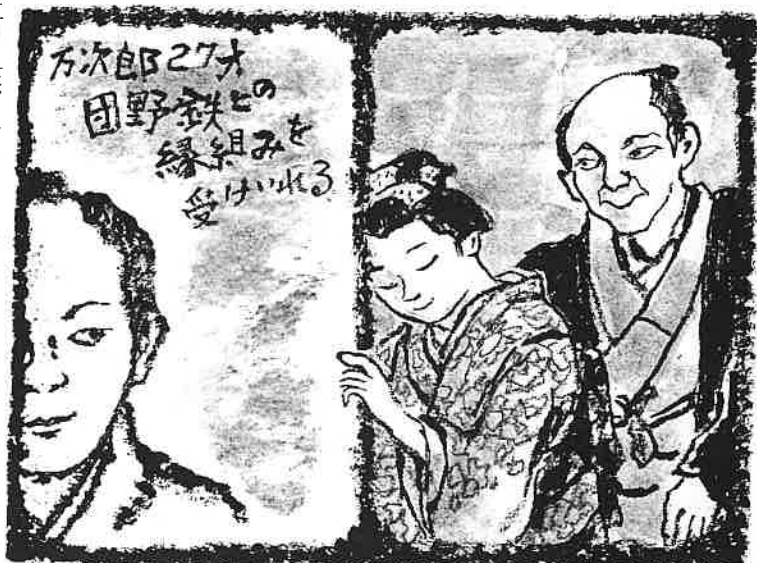 万次郎27才
団野鉄との
縁組みを
受けいれる